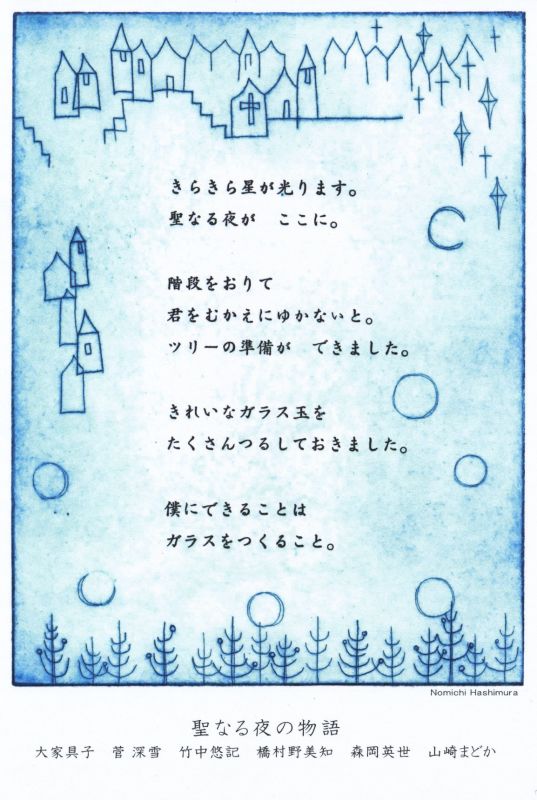 きらきら星が光ります。
聖なる夜が　ここに。
階段をおりて
君をむかえにゆかないと。
ツリーの準備が　できました。
きれいなガラス玉を
たくさんつるしておきました。
僕にできることは
ガラスをつくること。
Nomichi Hashimura
聖なる夜の物語
大家具子　菅 深雪　竹中悠記　橋村野美知　森岡英世　山崎まどか